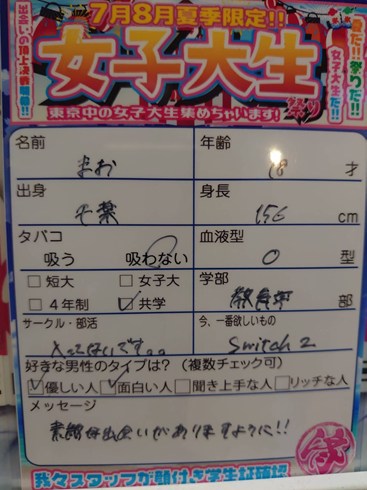 出会いの頂上決戦開催!!
7月8月夏季限定!!
夏だ!!祭りだ!!
女子大生だ!!
女子大生
祭り
東京中の女子大生集めちゃいます!
名前
まお
年齢
18 才
出身
千葉
身長
156 cm
タバコ
吸う 吸わない
血液型
O 型
□ 短大 □ 女子大
□ 4年制 ☑ 共学
学部
教育学 部
サークル・部活
入ってないです。。
今、一番欲しいもの
Switch 2
好きな男性のタイプは?(複数チェック可)
☑ 優しい人 ☑ 面白い人 □ 聞き上手な人 □ リッチな人
メッセージ
素敵な出会いがありますように!!
我々スタッフが顔付き学生証確認